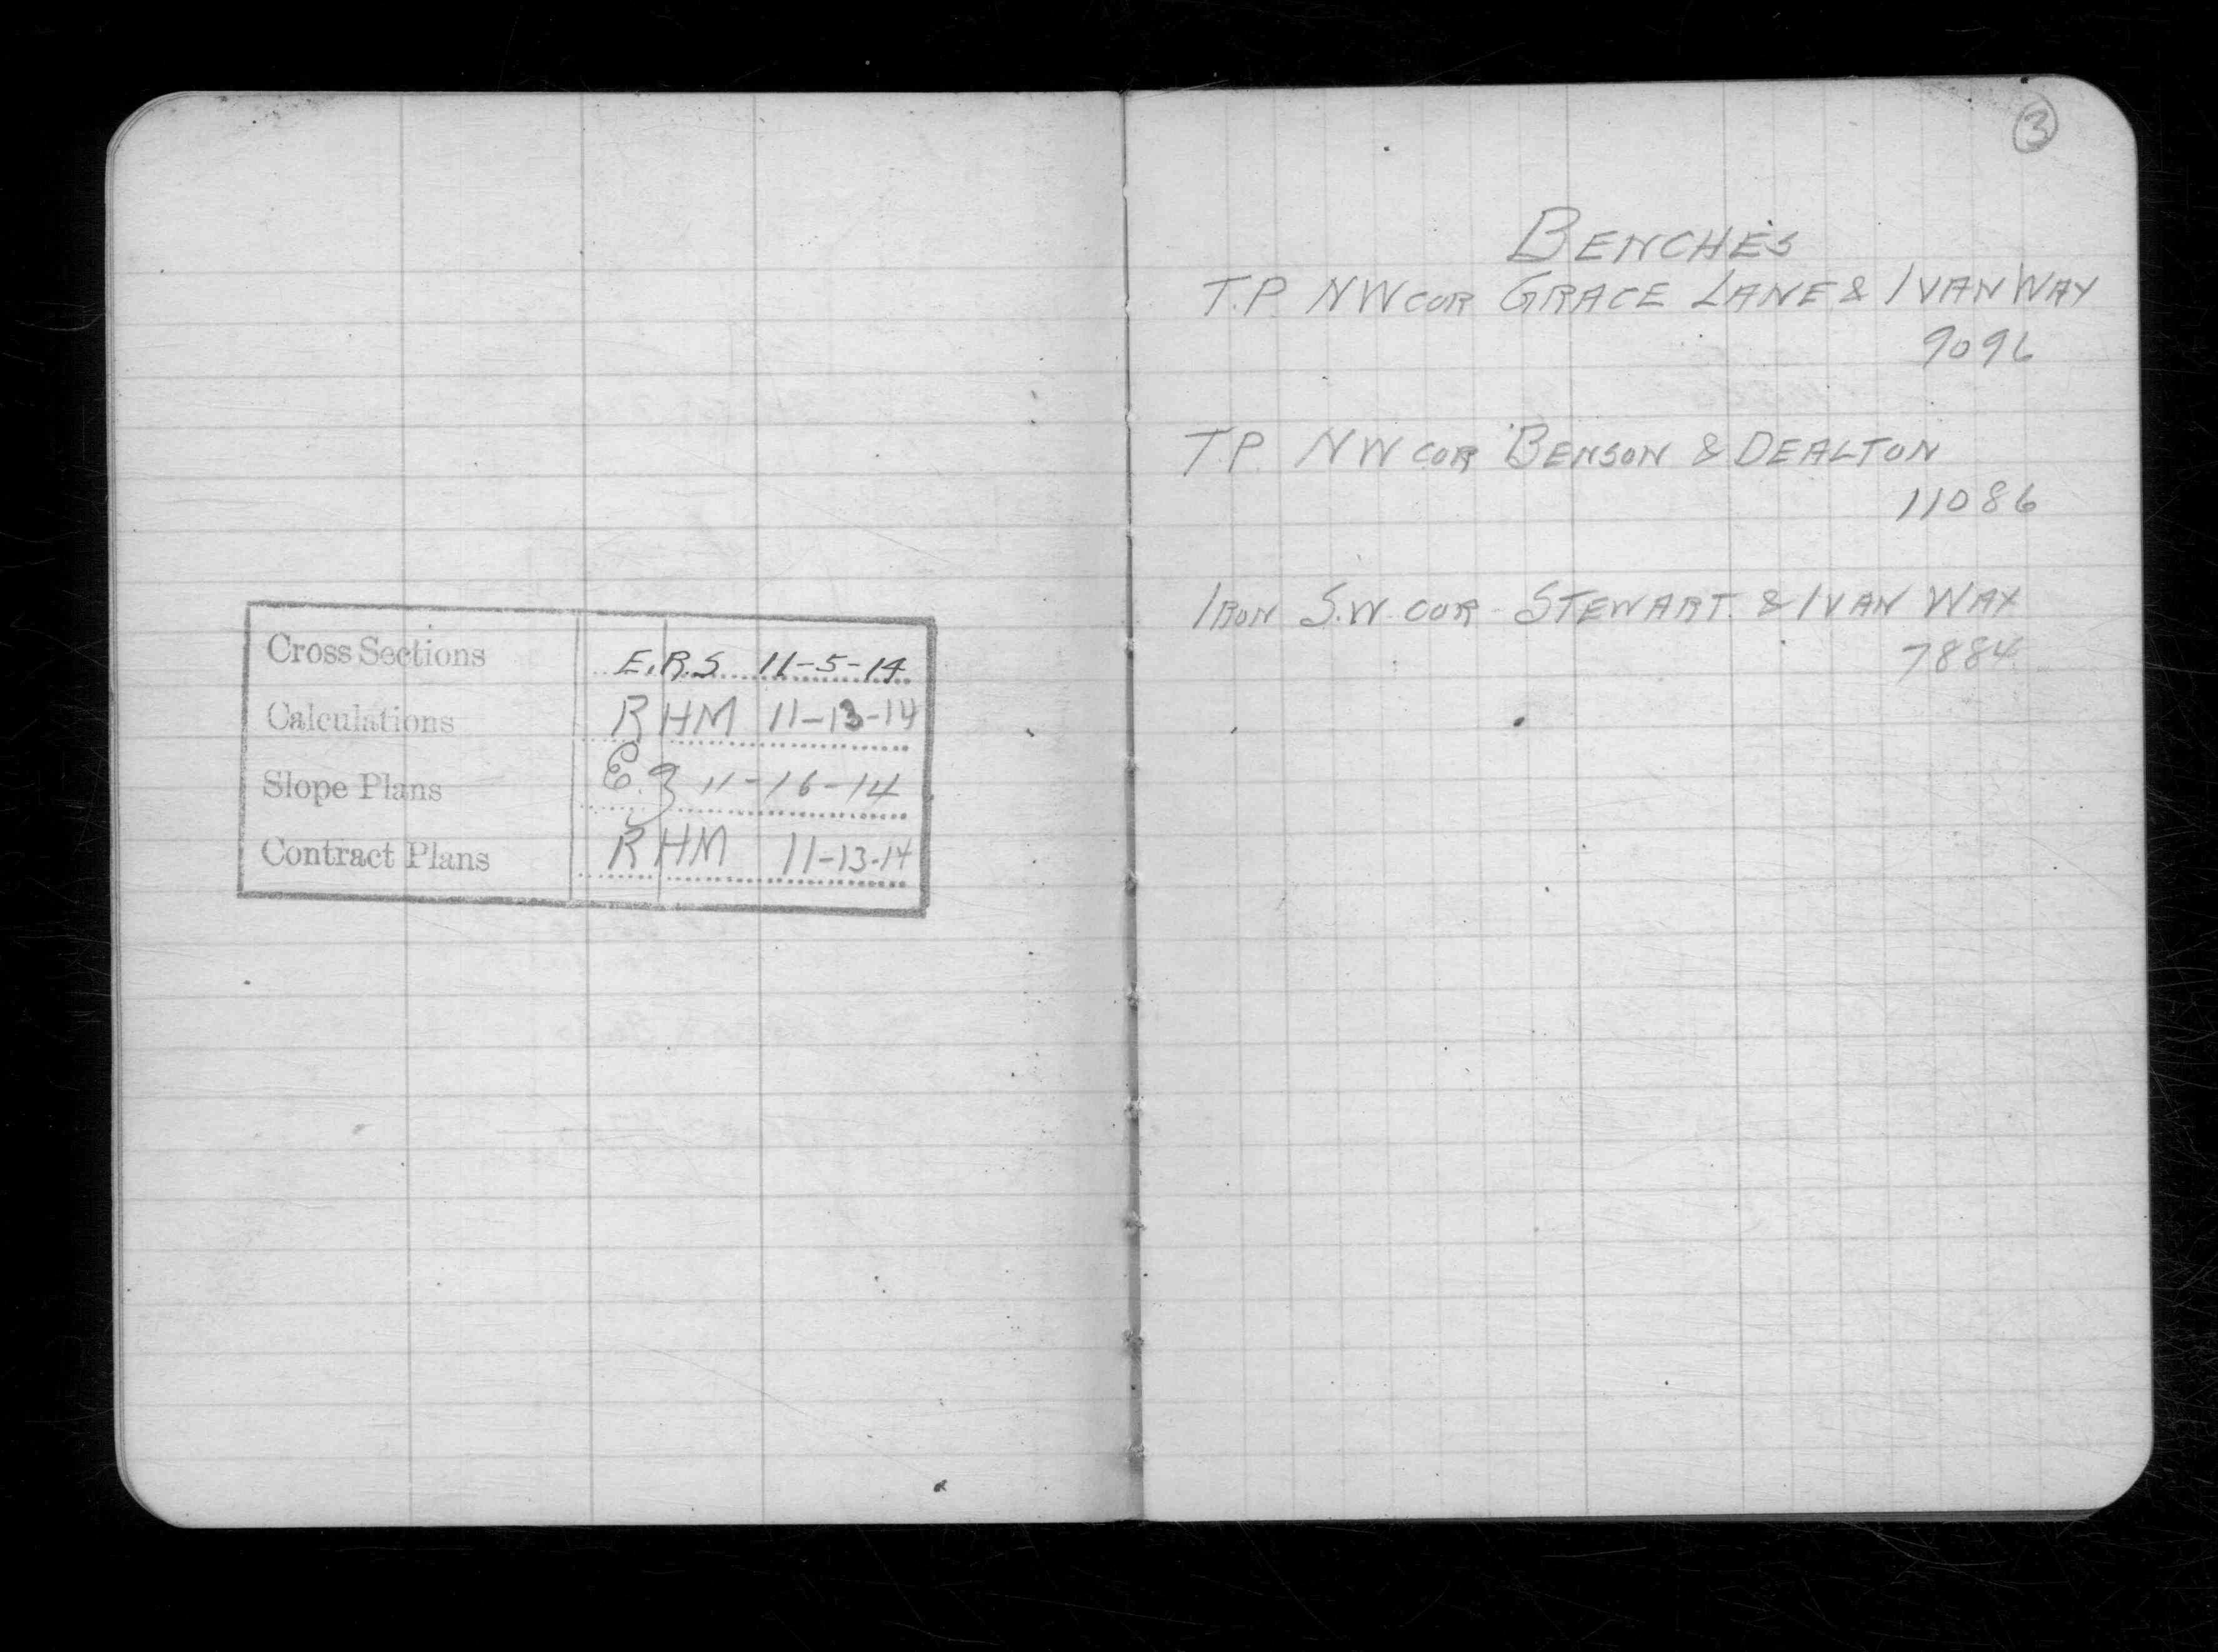 Cross Sections E.R.S 11-5-14
Calculations RHM 11-13-14
Slope Plans 11-16-14
Contract Plans RHM 11-13-14
3
BENCHES
T.P. NW COR GRACE LANE & IVAN WAY
9096
T.P. NW COR BENSON & DEALTON
11086
IRON S.W. COR STEWART & IVAN WAY
7884